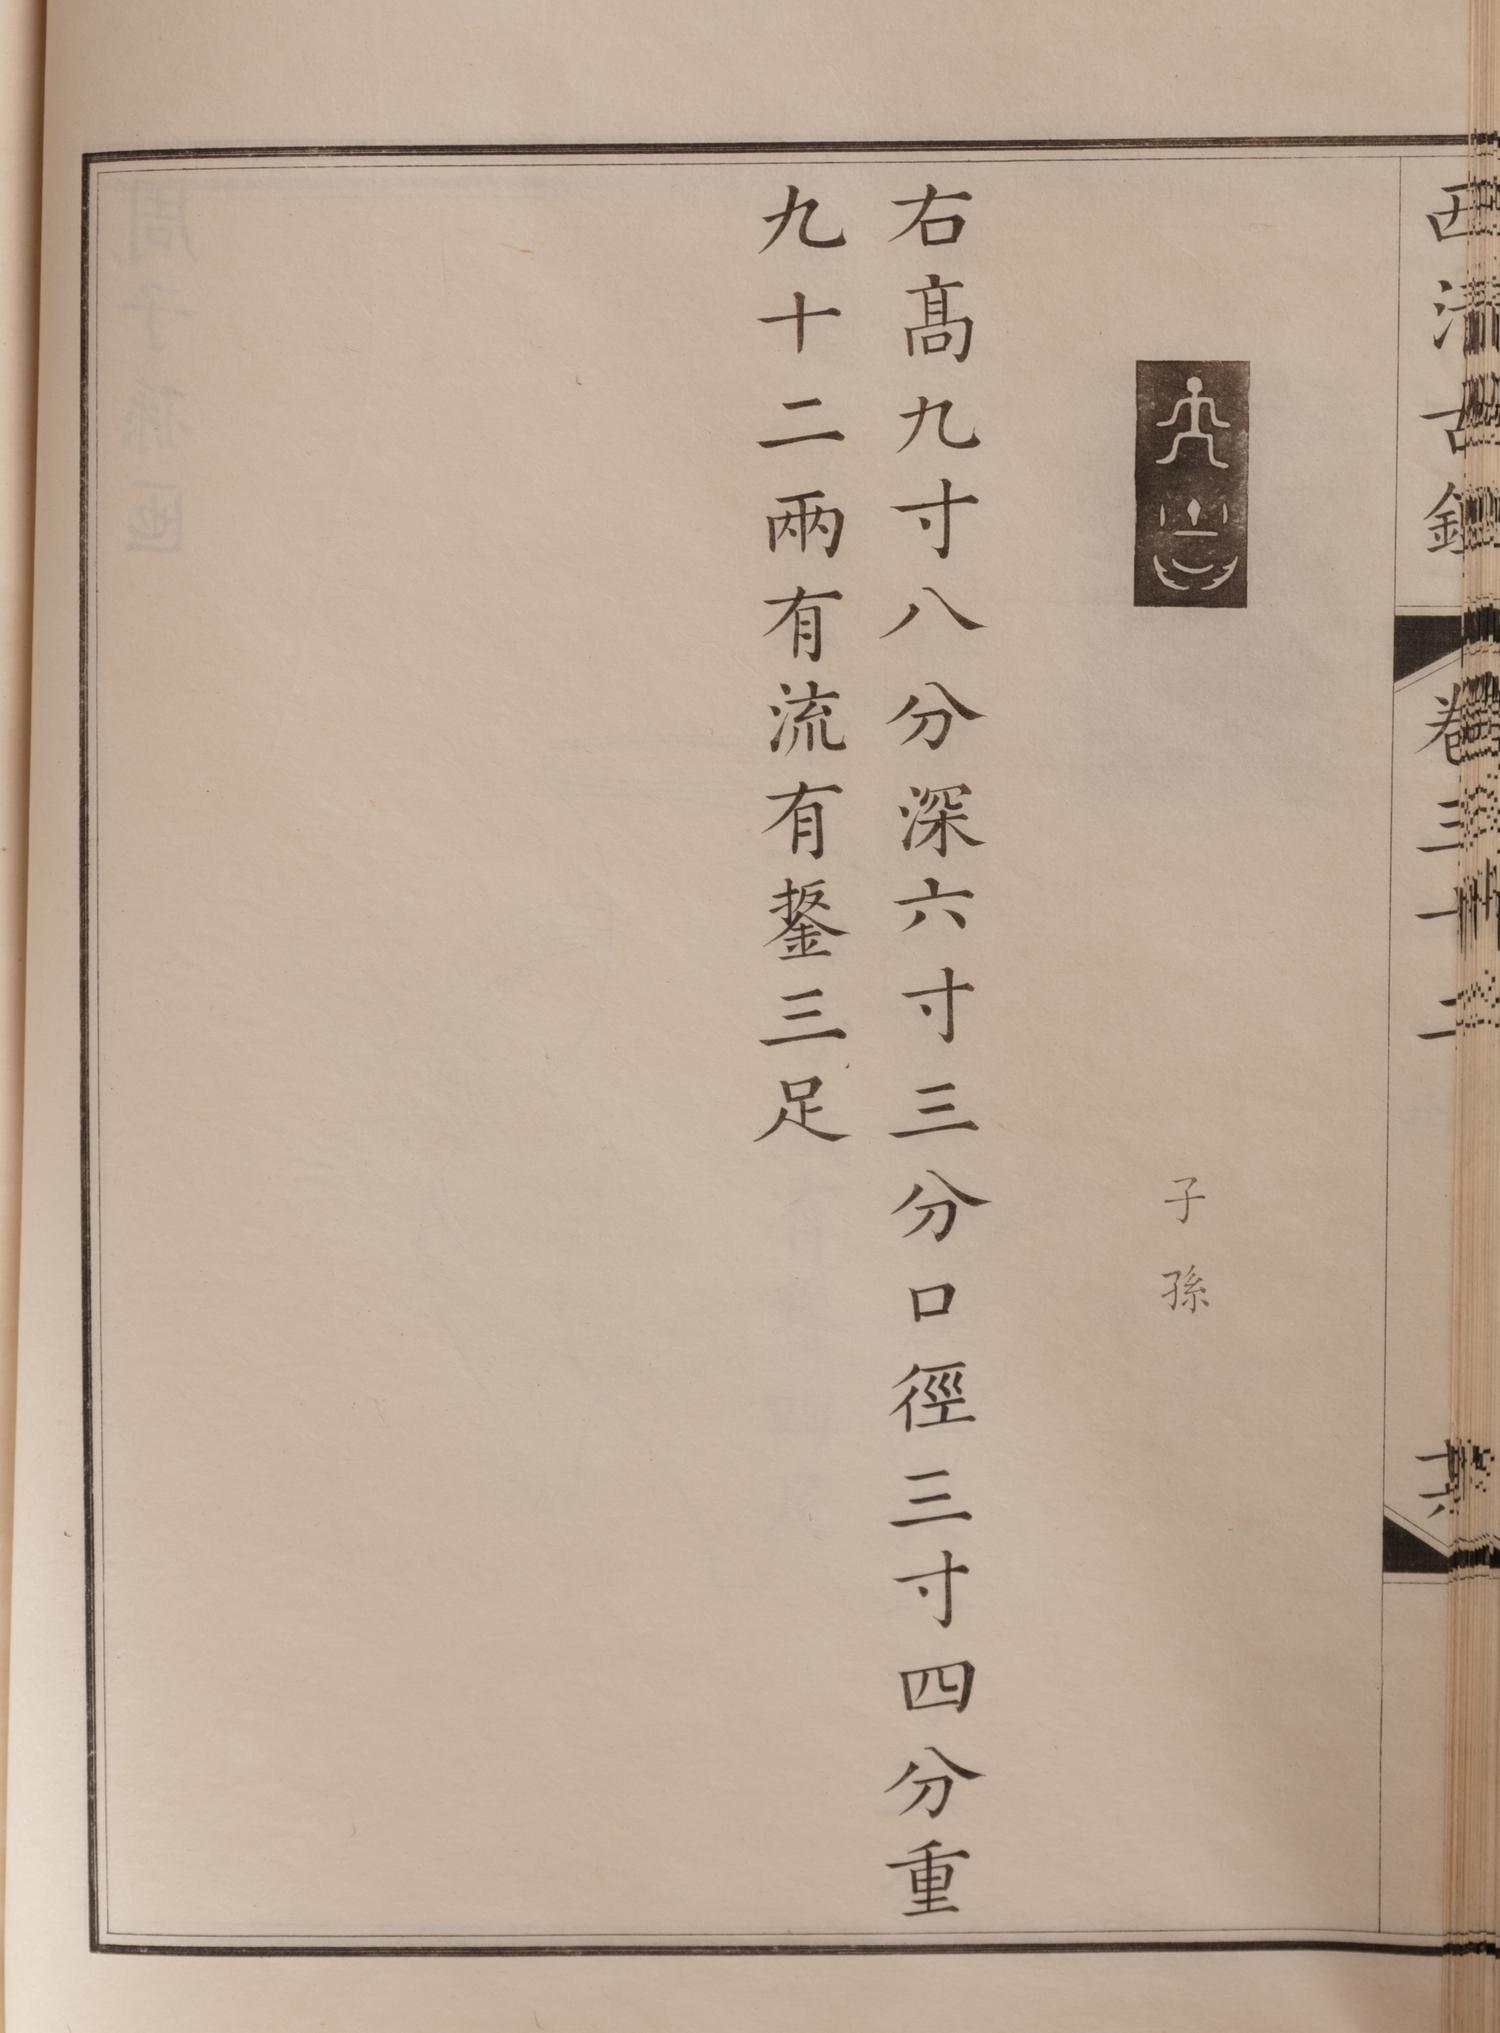 西清古鑑 卷三十二
子孫
右髙九寸八分深六寸三分口徑三寸四分重
九十二兩有流有鋬三足